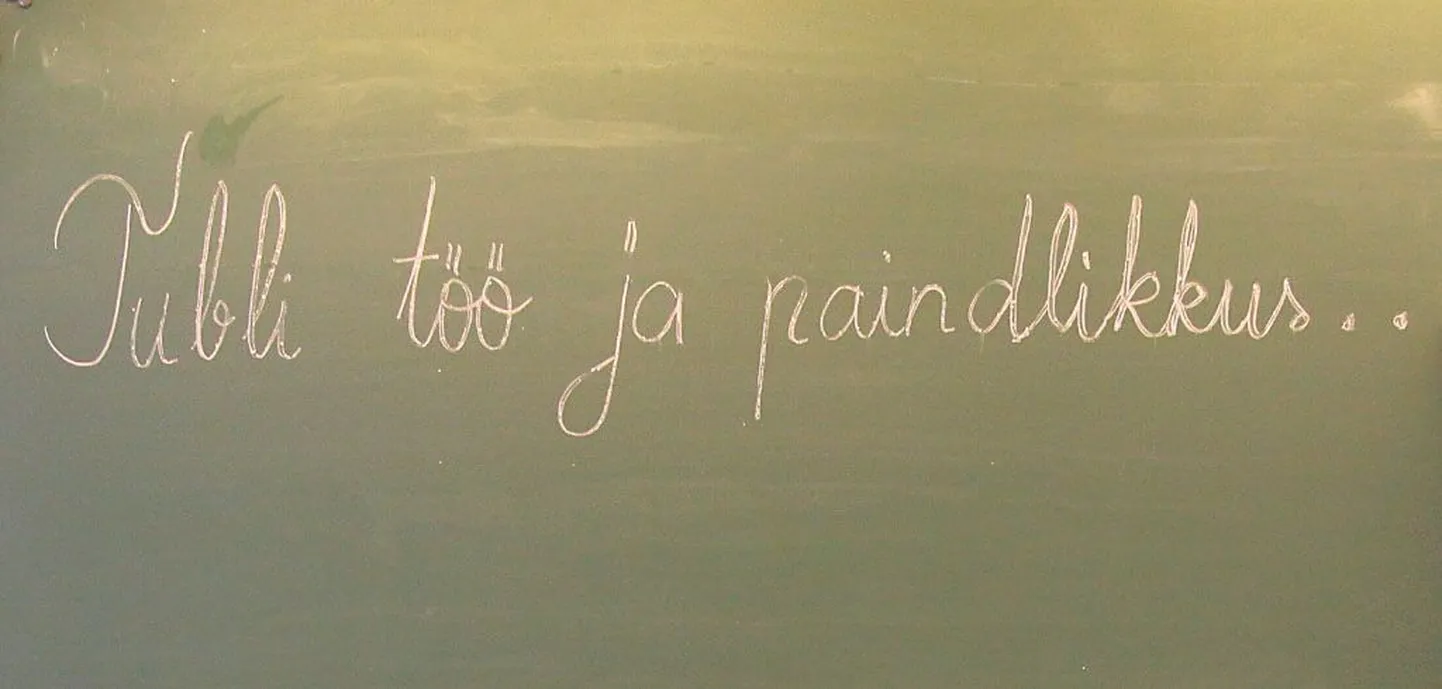 Tubli töö ja paindlikkus..